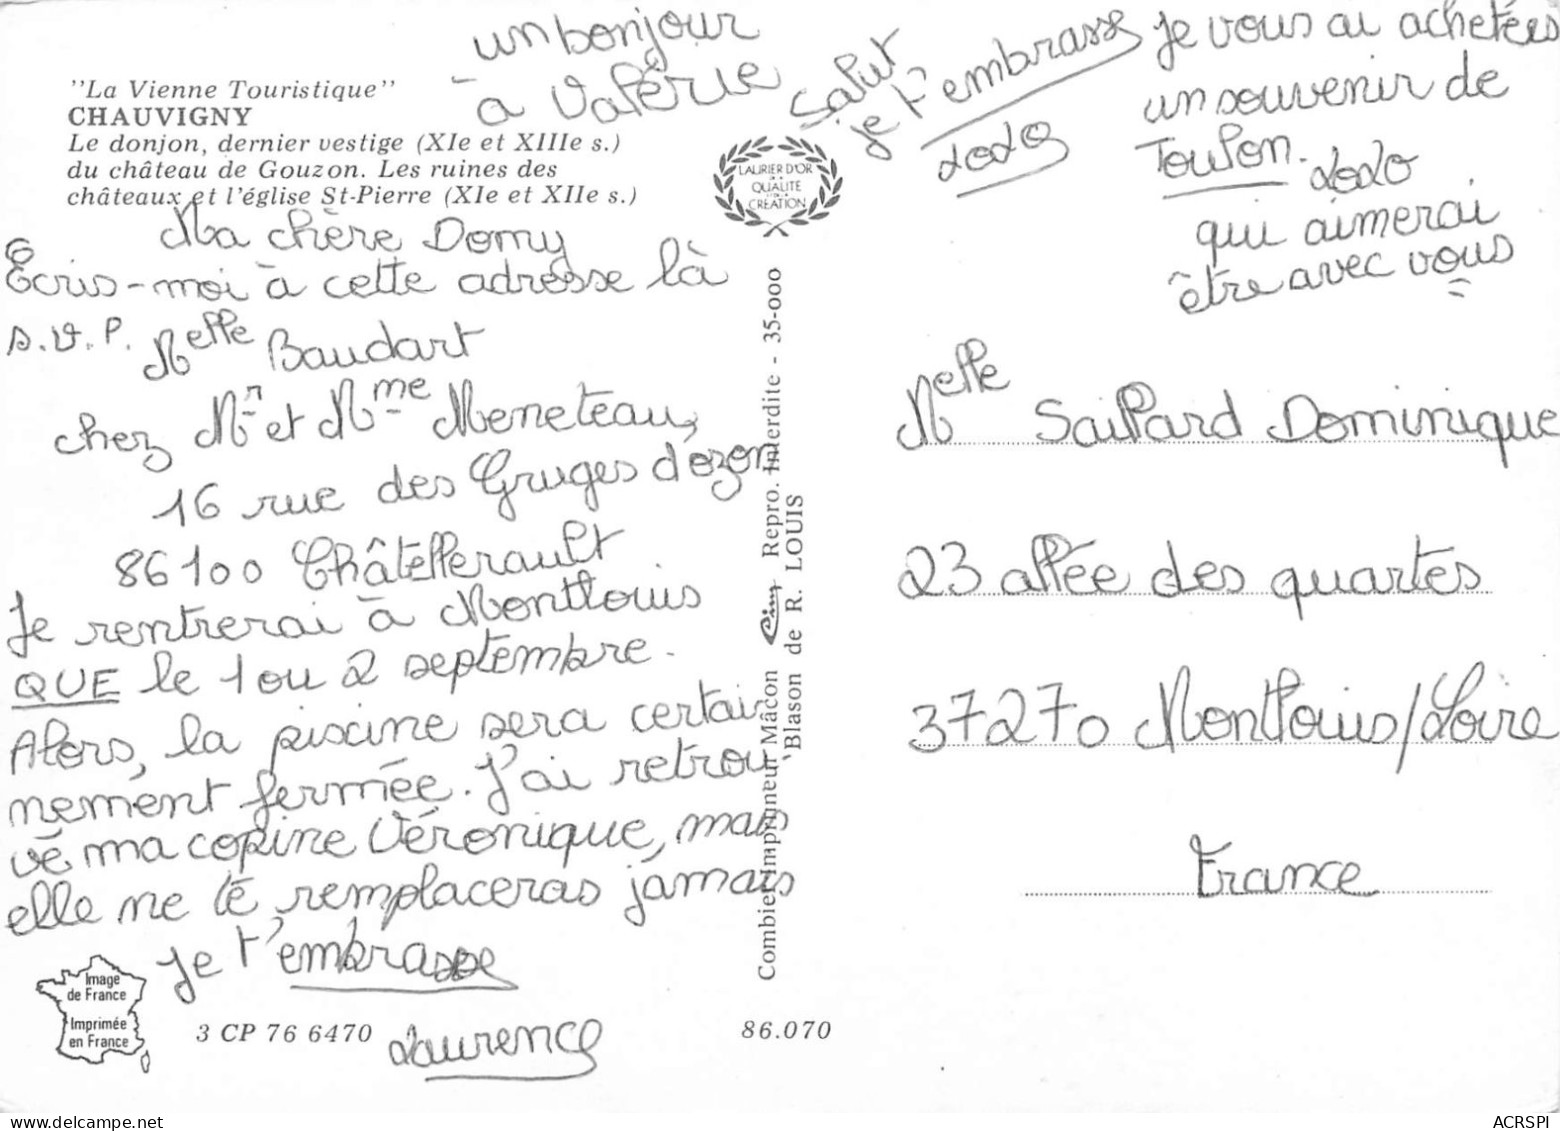 un bonjour
à Valérie
Salut
je t'embrasse
Lolo
je vous ai achetées
un souvenir de
Toulon. Lolo
qui aimerai
être avec vous
"La Vienne Touristique"
CHAUVIGNY
Le donjon, dernier vestige (XIe et XIIIe s.)
du château de Gouzon. Les ruines des
châteaux et l'église St-Pierre (XIe et XIIe s.)
LAURIER D'OR
DE LA
QUALITÉ
CRÉATION
Ma chère Domy
Écris-moi à cette adresse là
s.v.P. Melle Baudart
chez Mr et Mme Meneteau,
16 rue des Gruges d'ozon
86100 Châtellerault
Je rentrerai à Montlouis
QUE le 1 ou 2 septembre.
Alors, la piscine sera certai-
nement fermée. J'ai retrou-
vé ma copine Véronique, mais
elle ne te remplaceras jamais
je t'embrasse
Laurence
Image
de France
Imprimée
en France
3 CP 76 6470
86.070
Combier imprimeur Mâcon Cim Repro. Interdite - 35-000
Blason de R. LOUIS
Melle Saillard Dominique
23 allée des quartes
37270 Montlouis/Loire
France
ACRSPI